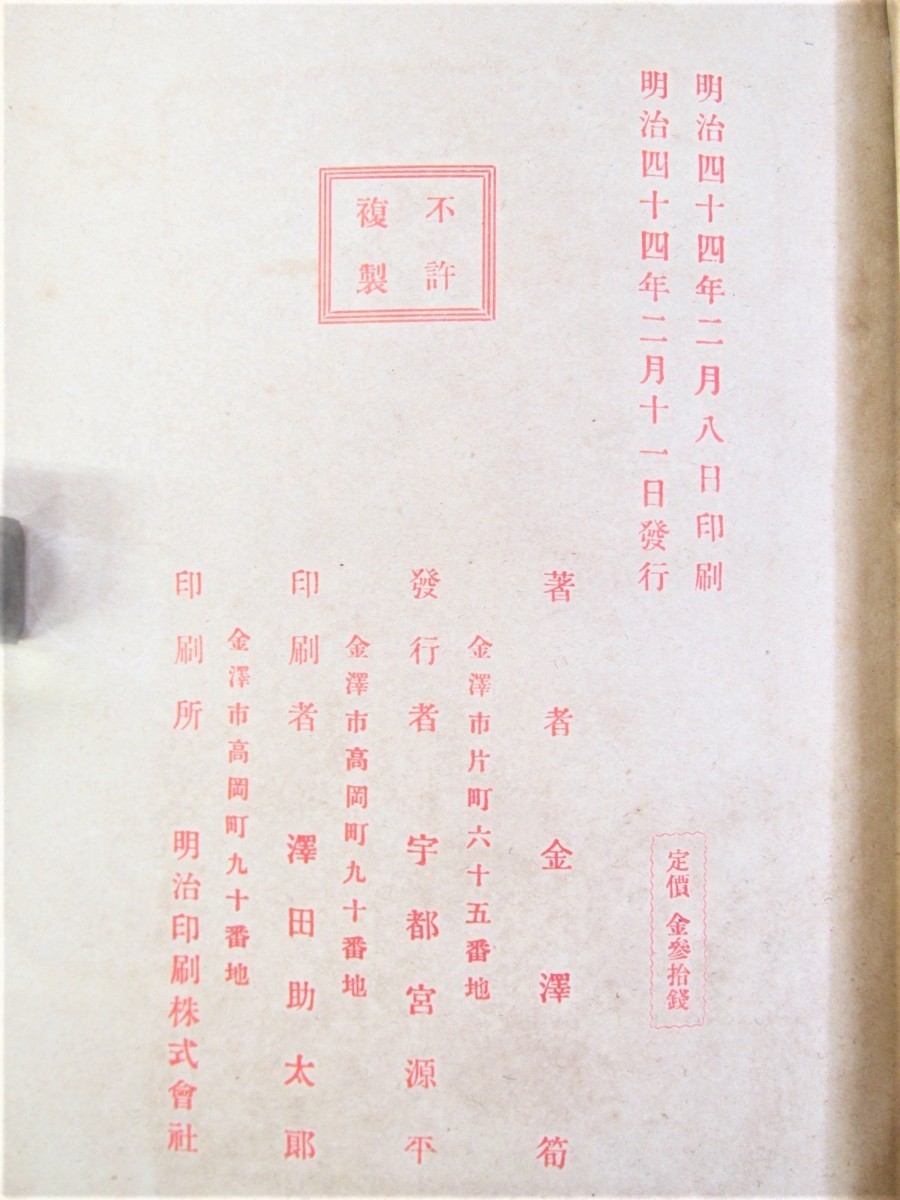 明治四十四年二月八日印刷
明治四十四年二月十一日發行
定價 金參拾錢
不許
複製
著者 金澤筍
金澤市片町六十五番地
發行者 宇都宮源平
金澤市高岡町九十番地
印刷者 澤田助太郎
金澤市高岡町九十番地
印刷所 明治印刷株式會社